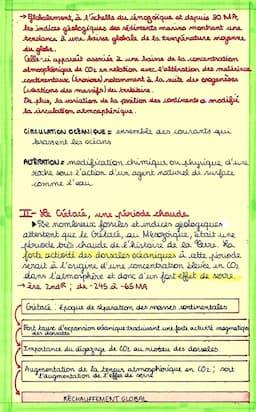 → Globalement, à l'échelle du cénozoïque et depuis 30 MA,
les indices géologiques des sédiments marins montrent une
tendance à une baisse globale de la température moyenne
du globe.
Celle-ci apparaît associée à une baisse de la concentration
atmosphérique de CO2 en relation avec l'altération des matériaux
continentaux (érosion) notamment à la suite des orogenèses
(créations des massifs) du tertiaire.
De plus, la variation de la position des continents a modifié
la circulation atmosphérique.
CIRCULATION OCÉANIQUE = ensemble des courants qui
brassent les océans
ALTÉRATION = modification chimique ou physique d'une
roche sous l'action d'un agent naturel de surface
comme l'eau.
II- Le Crétacé, une période chaude
▶ De nombreux fossiles et indices géologiques
attestent que le Crétacé, au Mésozoïque, était une
période très chaude de l'histoire de la Terre. La
forte activité des dorsales océaniques à cette période
serait à l'origine d'une concentration élevée en CO2
dans l'atmosphère et donc d'un fort effet de serre.
→ ère 2ndR : de -245 à -65 MA
Crétacé : époque de séparation des masses continentales
Fort taux d'expansion océanique traduisant une forte activité magmatique
des dorsales
Importance du dégazage de CO2 au niveau des dorsales
Augmentation de la teneur atmosphérique en CO2 ; soit
l'augmentation de l'effet de serre
RÉCHAUFFEMENT GLOBAL